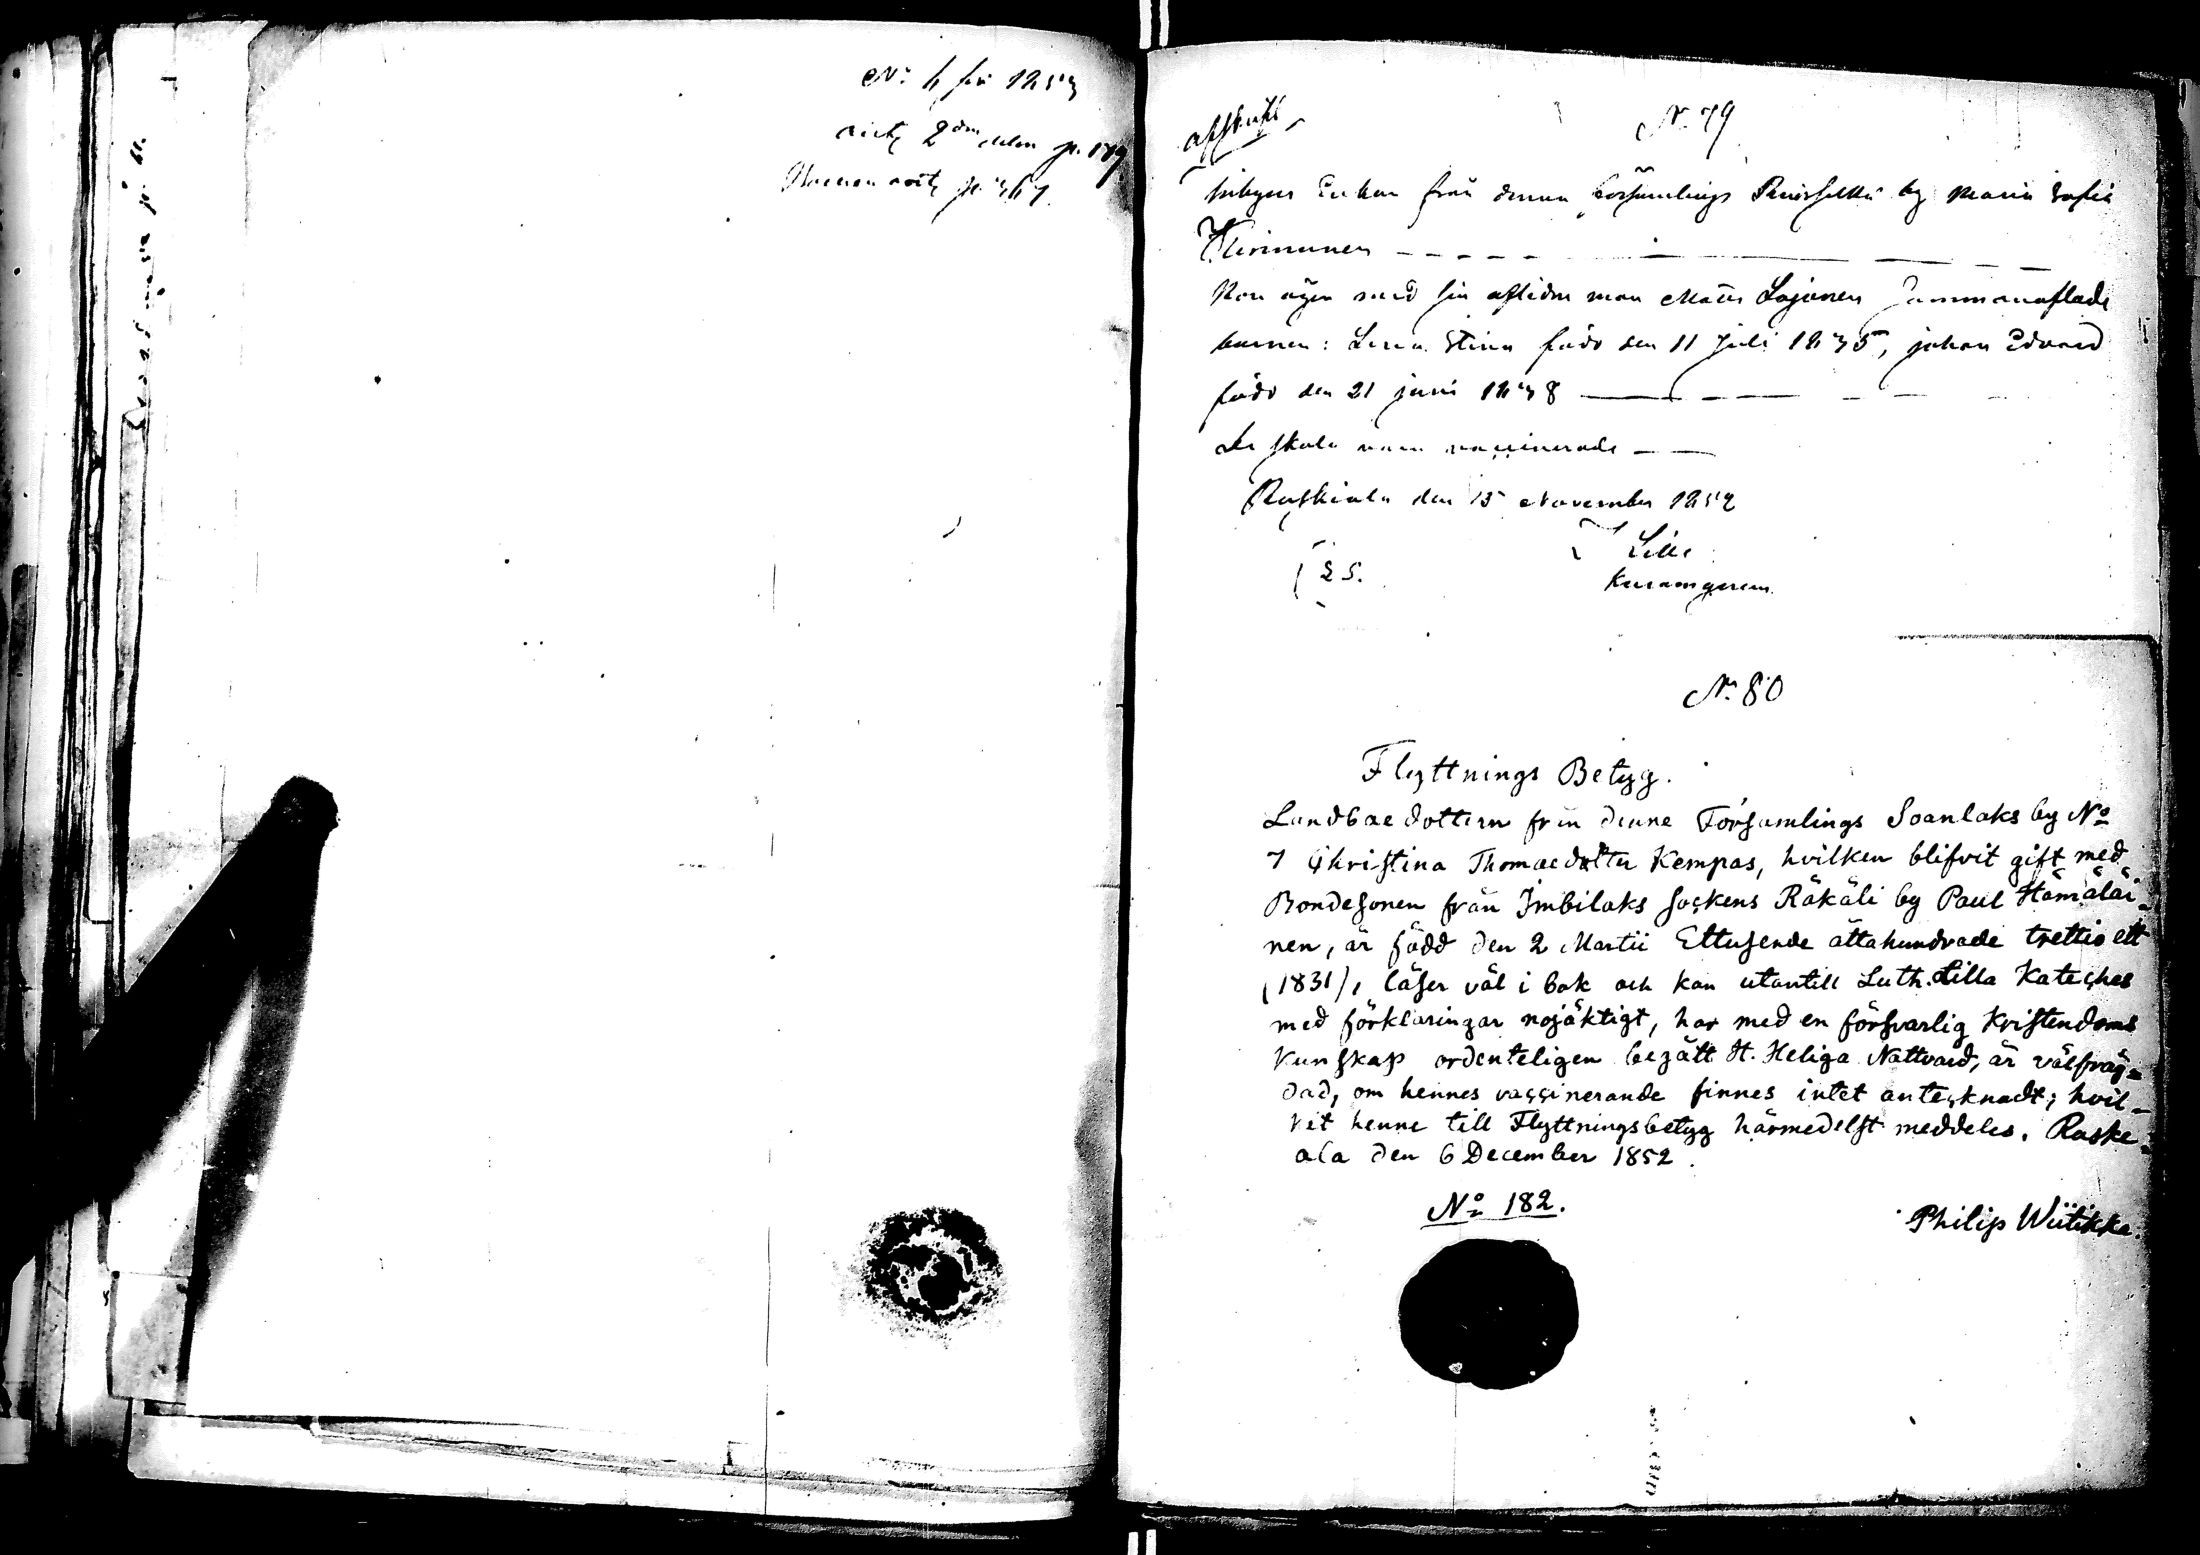 No 4 för 1853
2dra delen p. 179
p. 367
afskrift
No 79
Enkan från denna Församlings by Maria Sofia
Hirvonen
Hon äger med sin aflidne man Matts Lajonen sammanaflade
barnen: Lena Stina född den 11 Juli 1835, Johan Edvard
född den 21 juni 1838
De skola vara vaccinerade
Ruskiala den 15 November 1852
L S.
No 80
Flyttnings Betyg.
Landbae dottern från denne Församlings Soanlaks by No
7 Christina Thomaedotter Kempas, hvilken blifvit gift med
Bondesonen från Imbilaks sockens Räkäli by Paul Hämäläi-
nen, är född den 2 Martii Ettusende åttahundrade trettio ett
(1831), läser väl i bok och kan utantill Luth. Lilla Kateches
med förklaringar nojäktigt, har med en försvarlig Kristendoms
kunskap ordenteligen begått H. Heliga Nattvard, är välfräg=
dad, om hennes vaccinerande finnes intet antecknadt; hvil-
ket henne till Flyttningsbetyg härmedelst meddeles. Ruske=
ala den 6 December 1852.
No 182.
Philip Wiitikka.